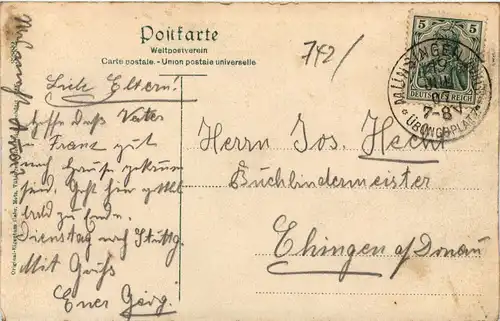 Postkarte
Weltpostverein
Carte postale. – Union postale universelle
742/
5 5
DEUTSCHES REICH
MÜNSINGEN
7-8V
* ÜBUNGSPLATZ *
Liebe Eltern!
Hoffe daß Vater
u. Franz gut
nach Hause gekom
sen. Geht hier
bald zu Ende.
Dienstag nach Stuttg.
Mit Gruß
Euer Georg
Herrn Jos. Hecht
Buchbindermeister
Ehingen a/Donau